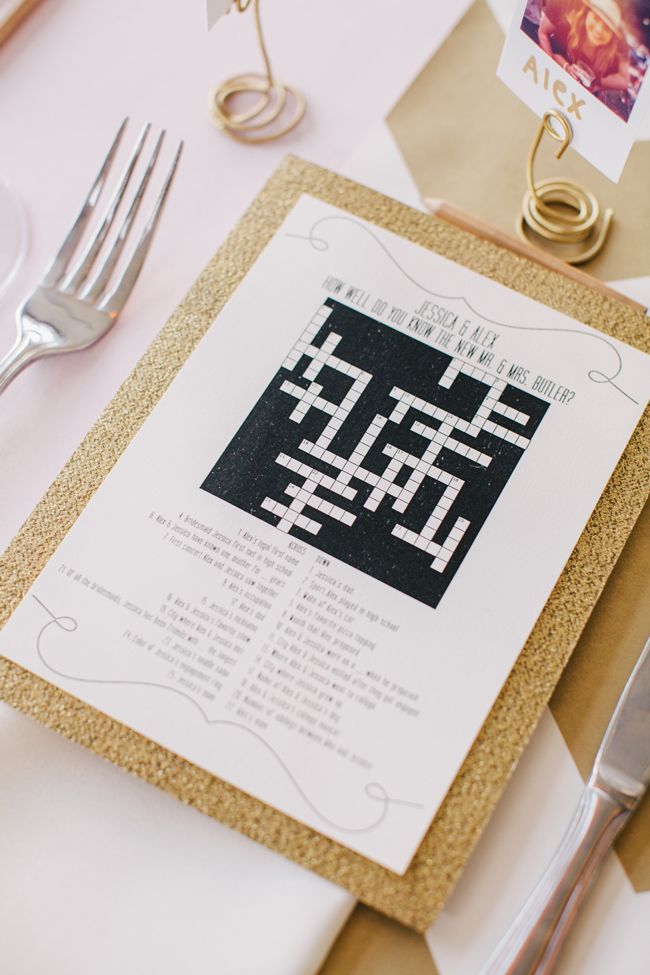 ALEX
JESSICA & ALEX
HOW WELL DO YOU KNOW THE NEW MR. & MRS. BUTLER?
ACROSS
1. Alex's legal first name
4. Bridesmaid Jessica first met in high school
6. Alex & Jessica have known one another for ... years
7. First concert Alex and Jessica saw together
9. Alex's occupation
12. Alex's dad
15. Jessica's nickname
16. Alex & Jessica's favorite show
19. City where Alex & Jessica met
21. Of all the bridesmaids, Jessica has been friends with ... the longest
23. Jessica's middle name
24. Color of Jessica's engagement ring
25. Jessica's mom
DOWN
1. Jessica's dad
2. Sport Alex played in high school
3. Make of Alex's car
5. Alex's favorite pizza topping
8. Month that Alex proposed
10. Alex & Jessica were on a ... when he proposed
11. City Alex & Jessica visited after they got engaged
13. Where Alex & Jessica went to college
14. City where Jessica grew up
17. Name of Alex & Jessica's dog
18. Alex & Jessica's college mascot
20. Number of siblings between Alex and Jessica
22. Alex's mom